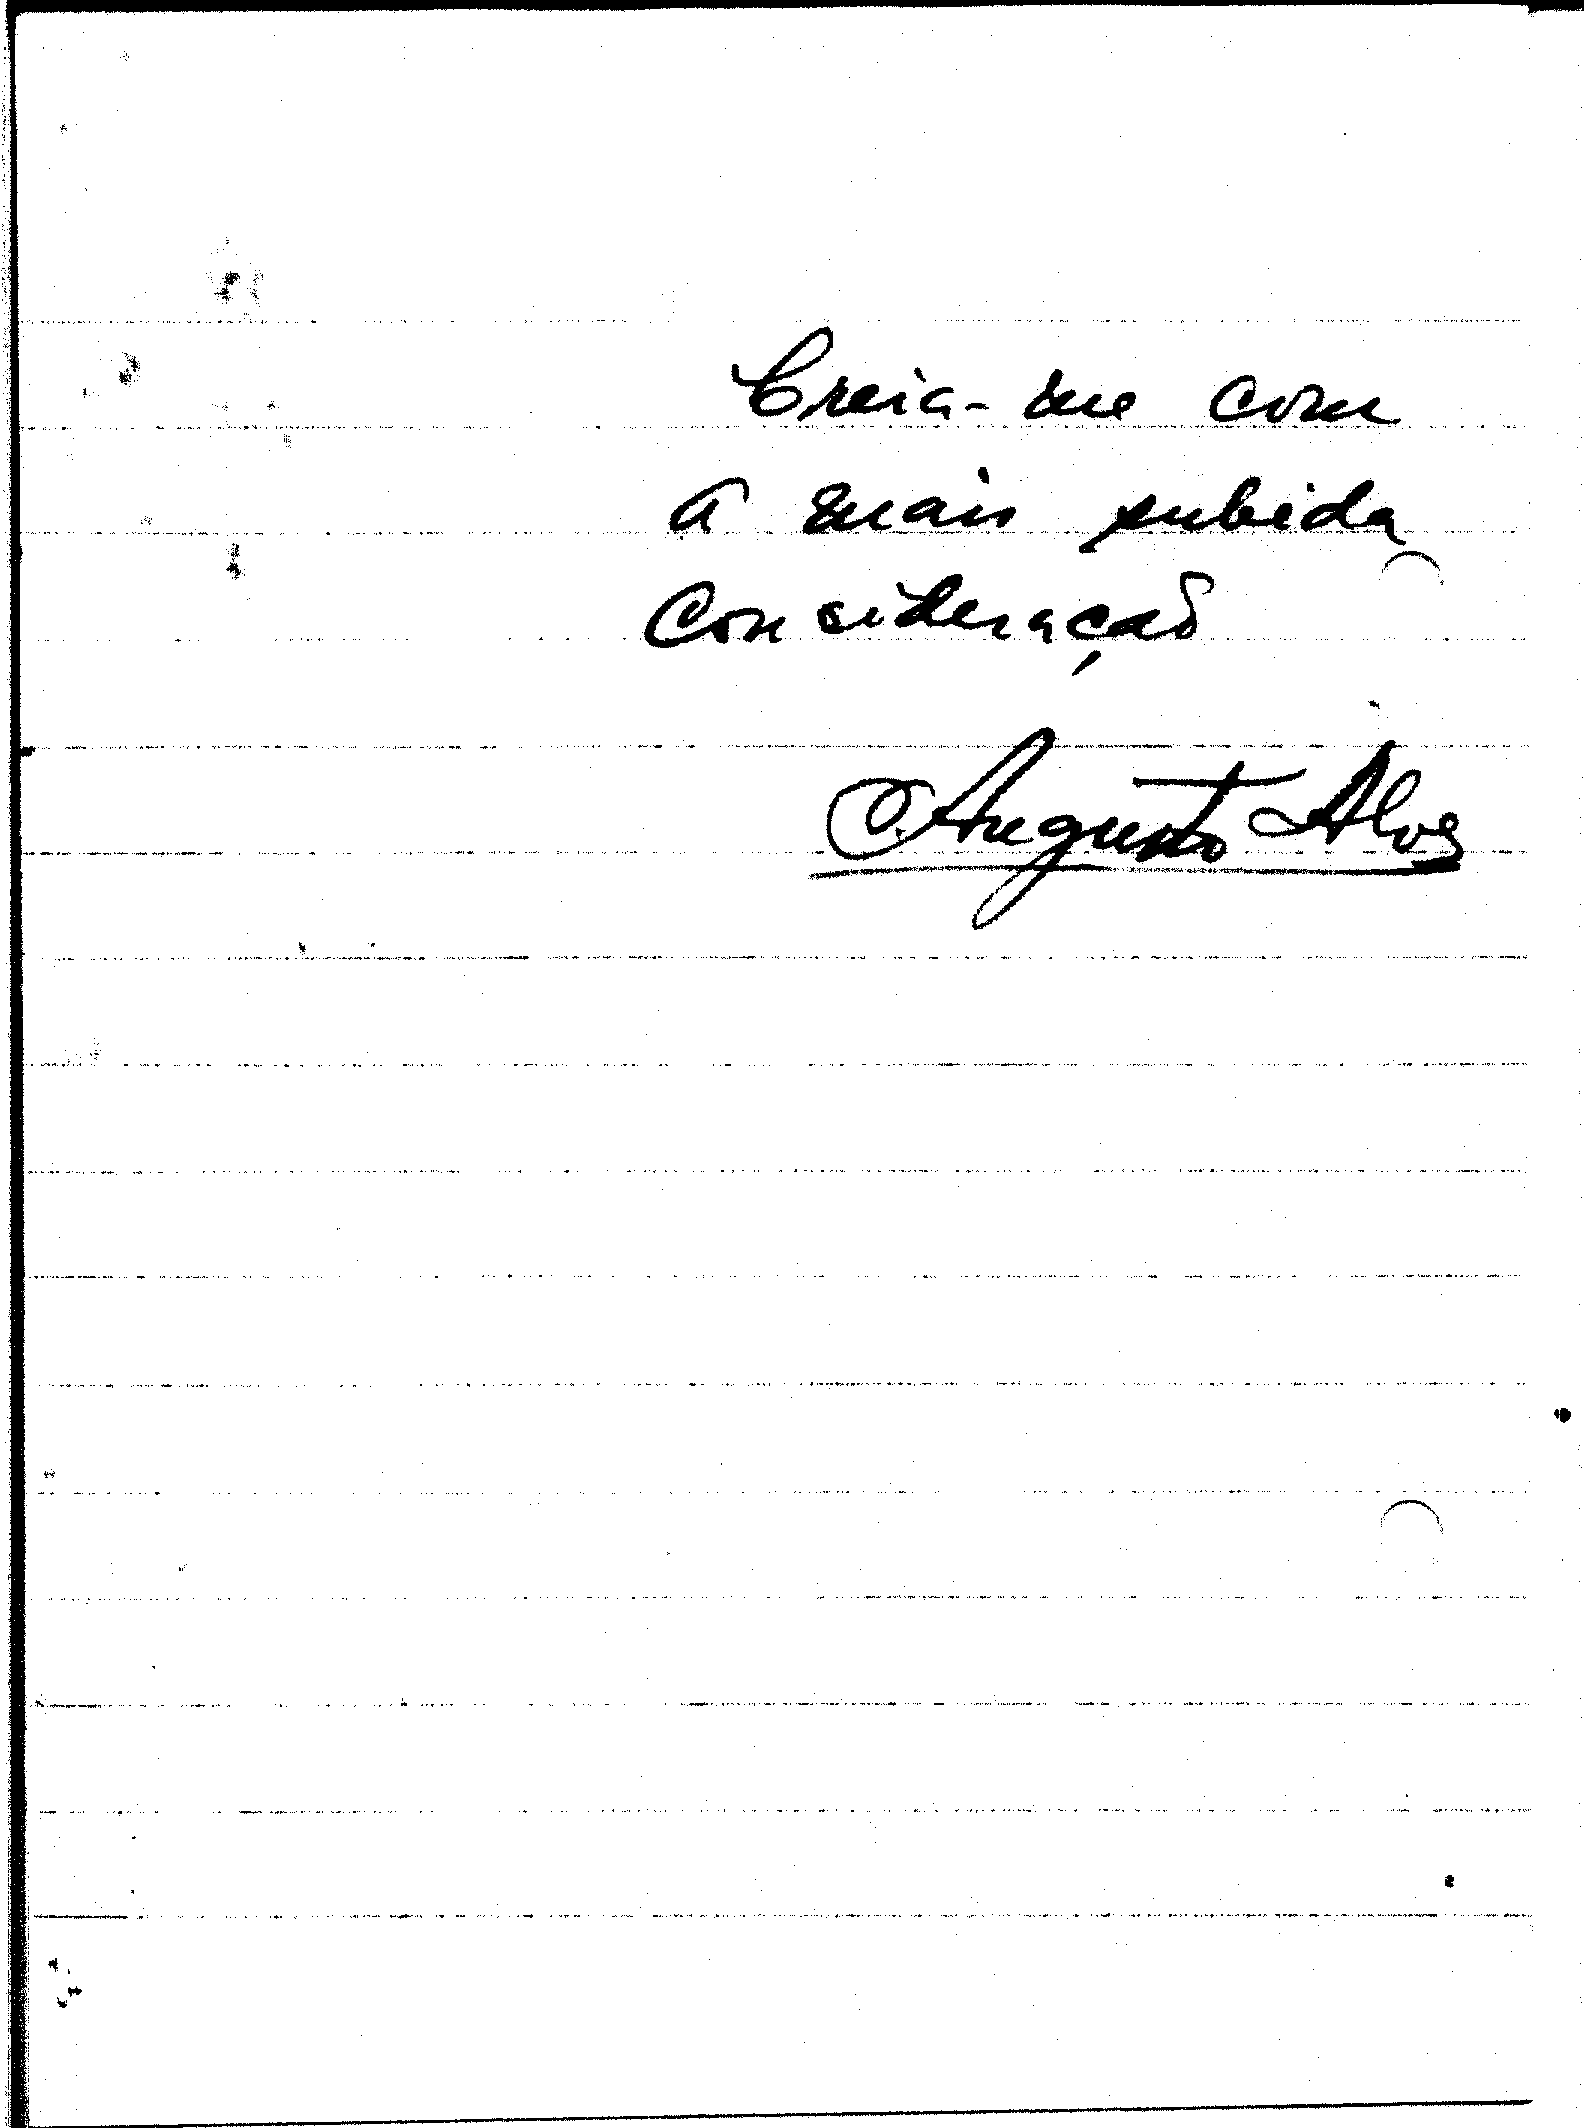 Creia-me com
a mais subida
Consideração
Augusto Alves